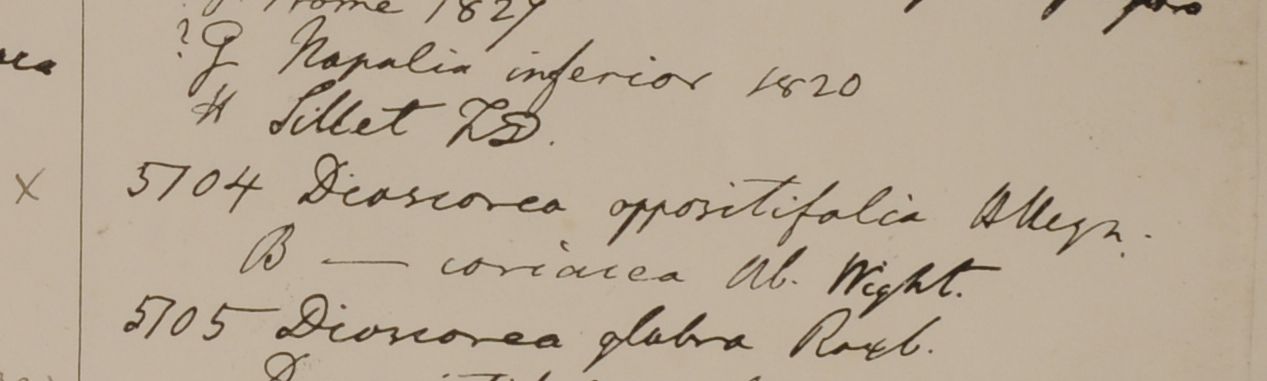 Prome 1827
? G Napalia inferior 1820
H Sillet F.D.
5104 Dioscorea oppositifolia H Heyn.
B — coriacea Hb. Wight.
5105 Dioscorea glabra Roxb.